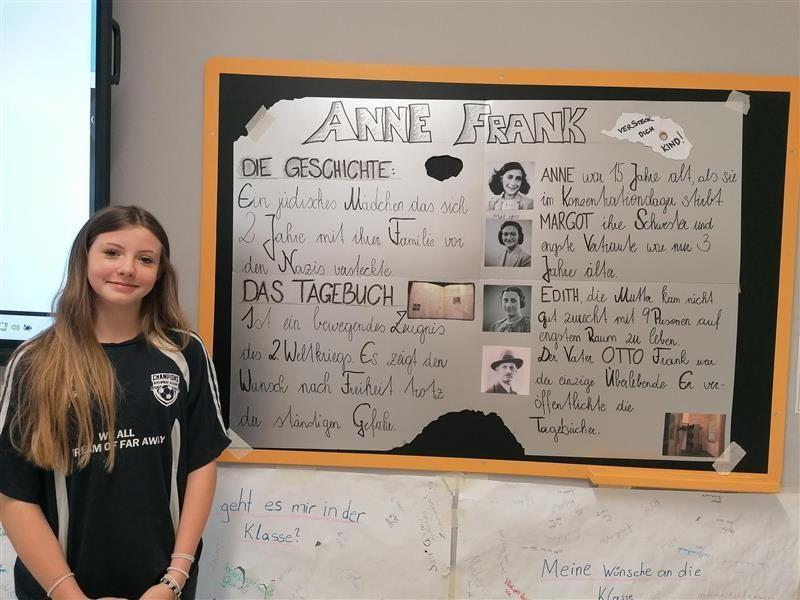 ANNE FRANK
VERSTECK
DICH
KIND!
DIE GESCHICHTE:
Ein jüdisches Mädchen das sich
2 Jahre mit ihrer Familie vor
den Nazis versteckte
DAS TAGEBUCH
Ist ein bewegendes Zeugnis
des 2. Weltkriegs. Es zeigt den
Wunsch nach Freiheit trotz
der ständigen Gefahr.
ANNE war 15 Jahre alt, als sie
im Konzentrationslager stirbt
MARGOT ihre Schwester und
engste Vertraute war nur 3
Jahre älter.
EDITH, die Mutter kam nicht
gut zurecht mit 9 Personen auf
engstem Raum zu leben.
Der Vater OTTO Frank war
der einzige Überlebende. Er ver-
öffentlichte die
Tagebücher.
CHAMPIONS
WE ALL
DREAM OF FAR AWAY
geht es mir in der
Klasse?
Meine Wünsche an die
Klasse